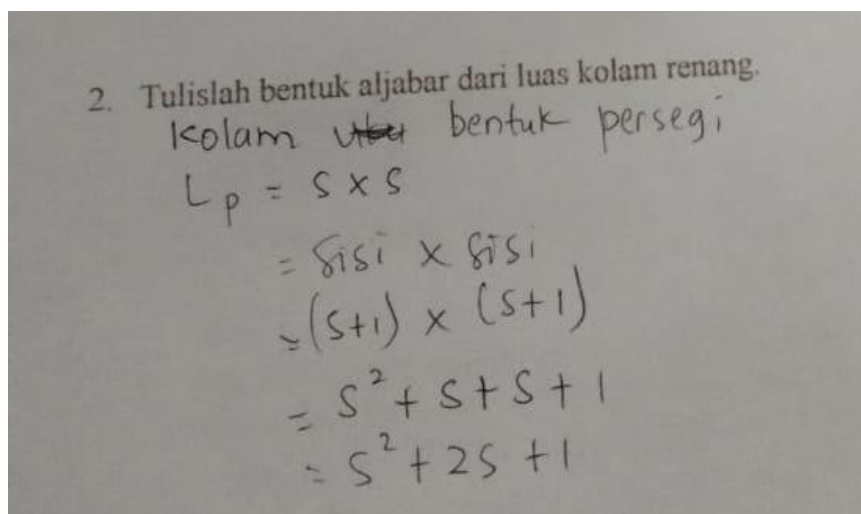 2. Tulislah bentuk aljabar dari luas kolam renang.
Kolam bentuk persegi
Lp = S x S
= Sisi x Sisi
= (S+1) x (S+1)
= S² + S + S + 1
= S² + 2S + 1